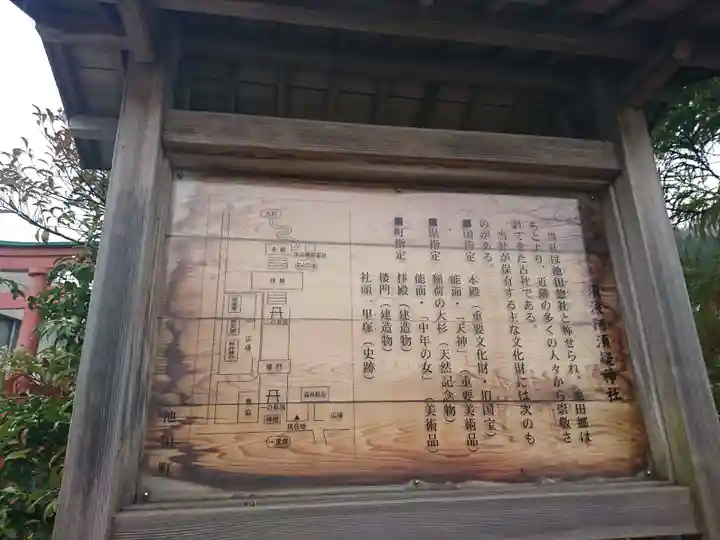 須波阿須疑神社
当社は池田惣社と称せられ、池田郷は
もとより、近隣の多くの人々から崇敬さ
れてきた古社である。
当社が保有する主な文化財には次のも
のがある。
■国指定 本殿（重要文化財・旧国宝）
能面・「天神」（重要美術品）
■県指定 稲荷の大杉（天然記念物）
能面・「中年の女」（美術品）
■町指定 拝殿（建造物）
楼門（建造物）
社頭一里塚（史跡）
本殿
拝殿
広場
楼門
森林組合
広場
現在地
一里塚
池田町